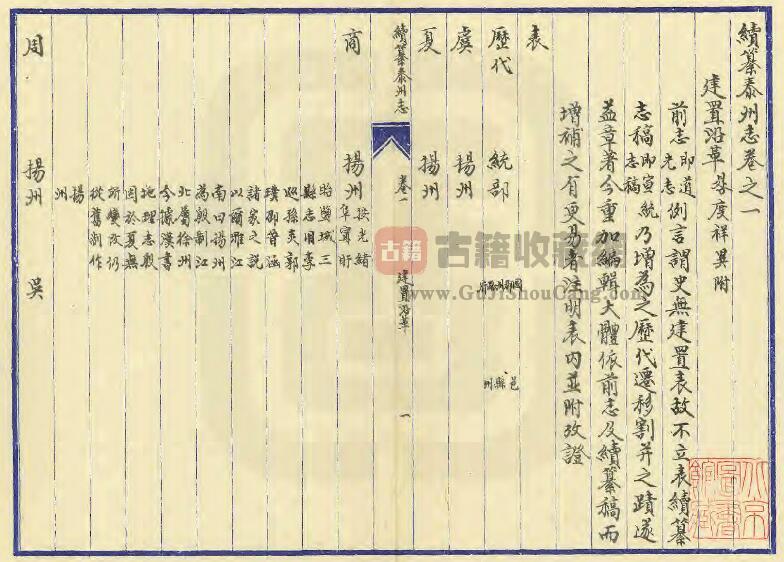 續纂泰州志卷之一
建置沿革 晷度祥異附
前志即道光志例言謂史無建置表故不立表續纂
志稿即宣統志稿乃增為之歷代遷移割并之蹟遂
益章著今重加編輯大體依前志及續纂稿而
增補之有更易者注明表內並附攷證
表
歷代 統部 邑縣州
虞 揚州
夏 揚州
續纂泰州志 卷一 建置沿革 一
商 揚州 按光緒
阜寧盱
眙鹽城三
縣志旧李
巡孫炎郭
璞邵晉涵
諸家之説
以爾雅江
南曰揚州
為殷制江
北屬徐州
今據漢書
地理志殷
因於夏無
所變改仍
從舊制作
揚州
周 揚州 吳
古籍 古籍收藏網
www.GuJiShouCang.com